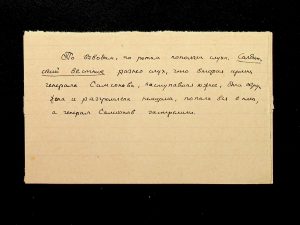 По взводам, по ротам поползли слухи, Солдат-
ский вестник разнёс слух, что вторая армия
генерала Самсонова, наступавшая южнее, была окру-
жена и разгромлена немцами, попала вся в плен,
а генерал Самсонов застрелился.